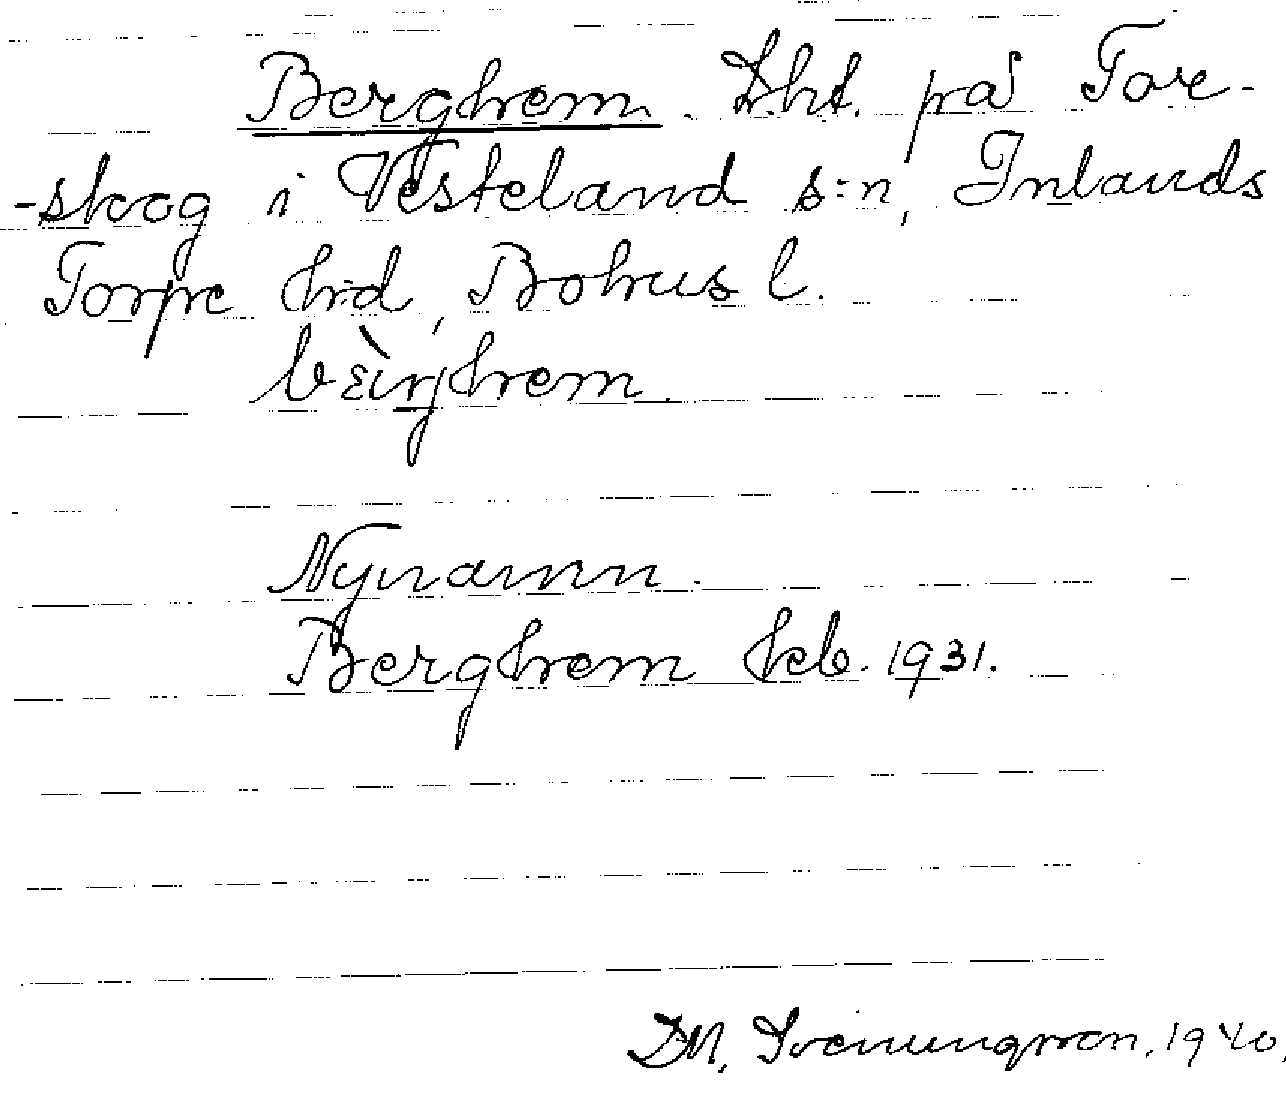 Berghem. Lht. på Tore-
-skog i Vesteland s:n, Inlands
Torpe hrd, Bohus l.
bèrjhem.
Nynamn.
Berghem keb. 1931.
DM. Svenungsson, 1940.